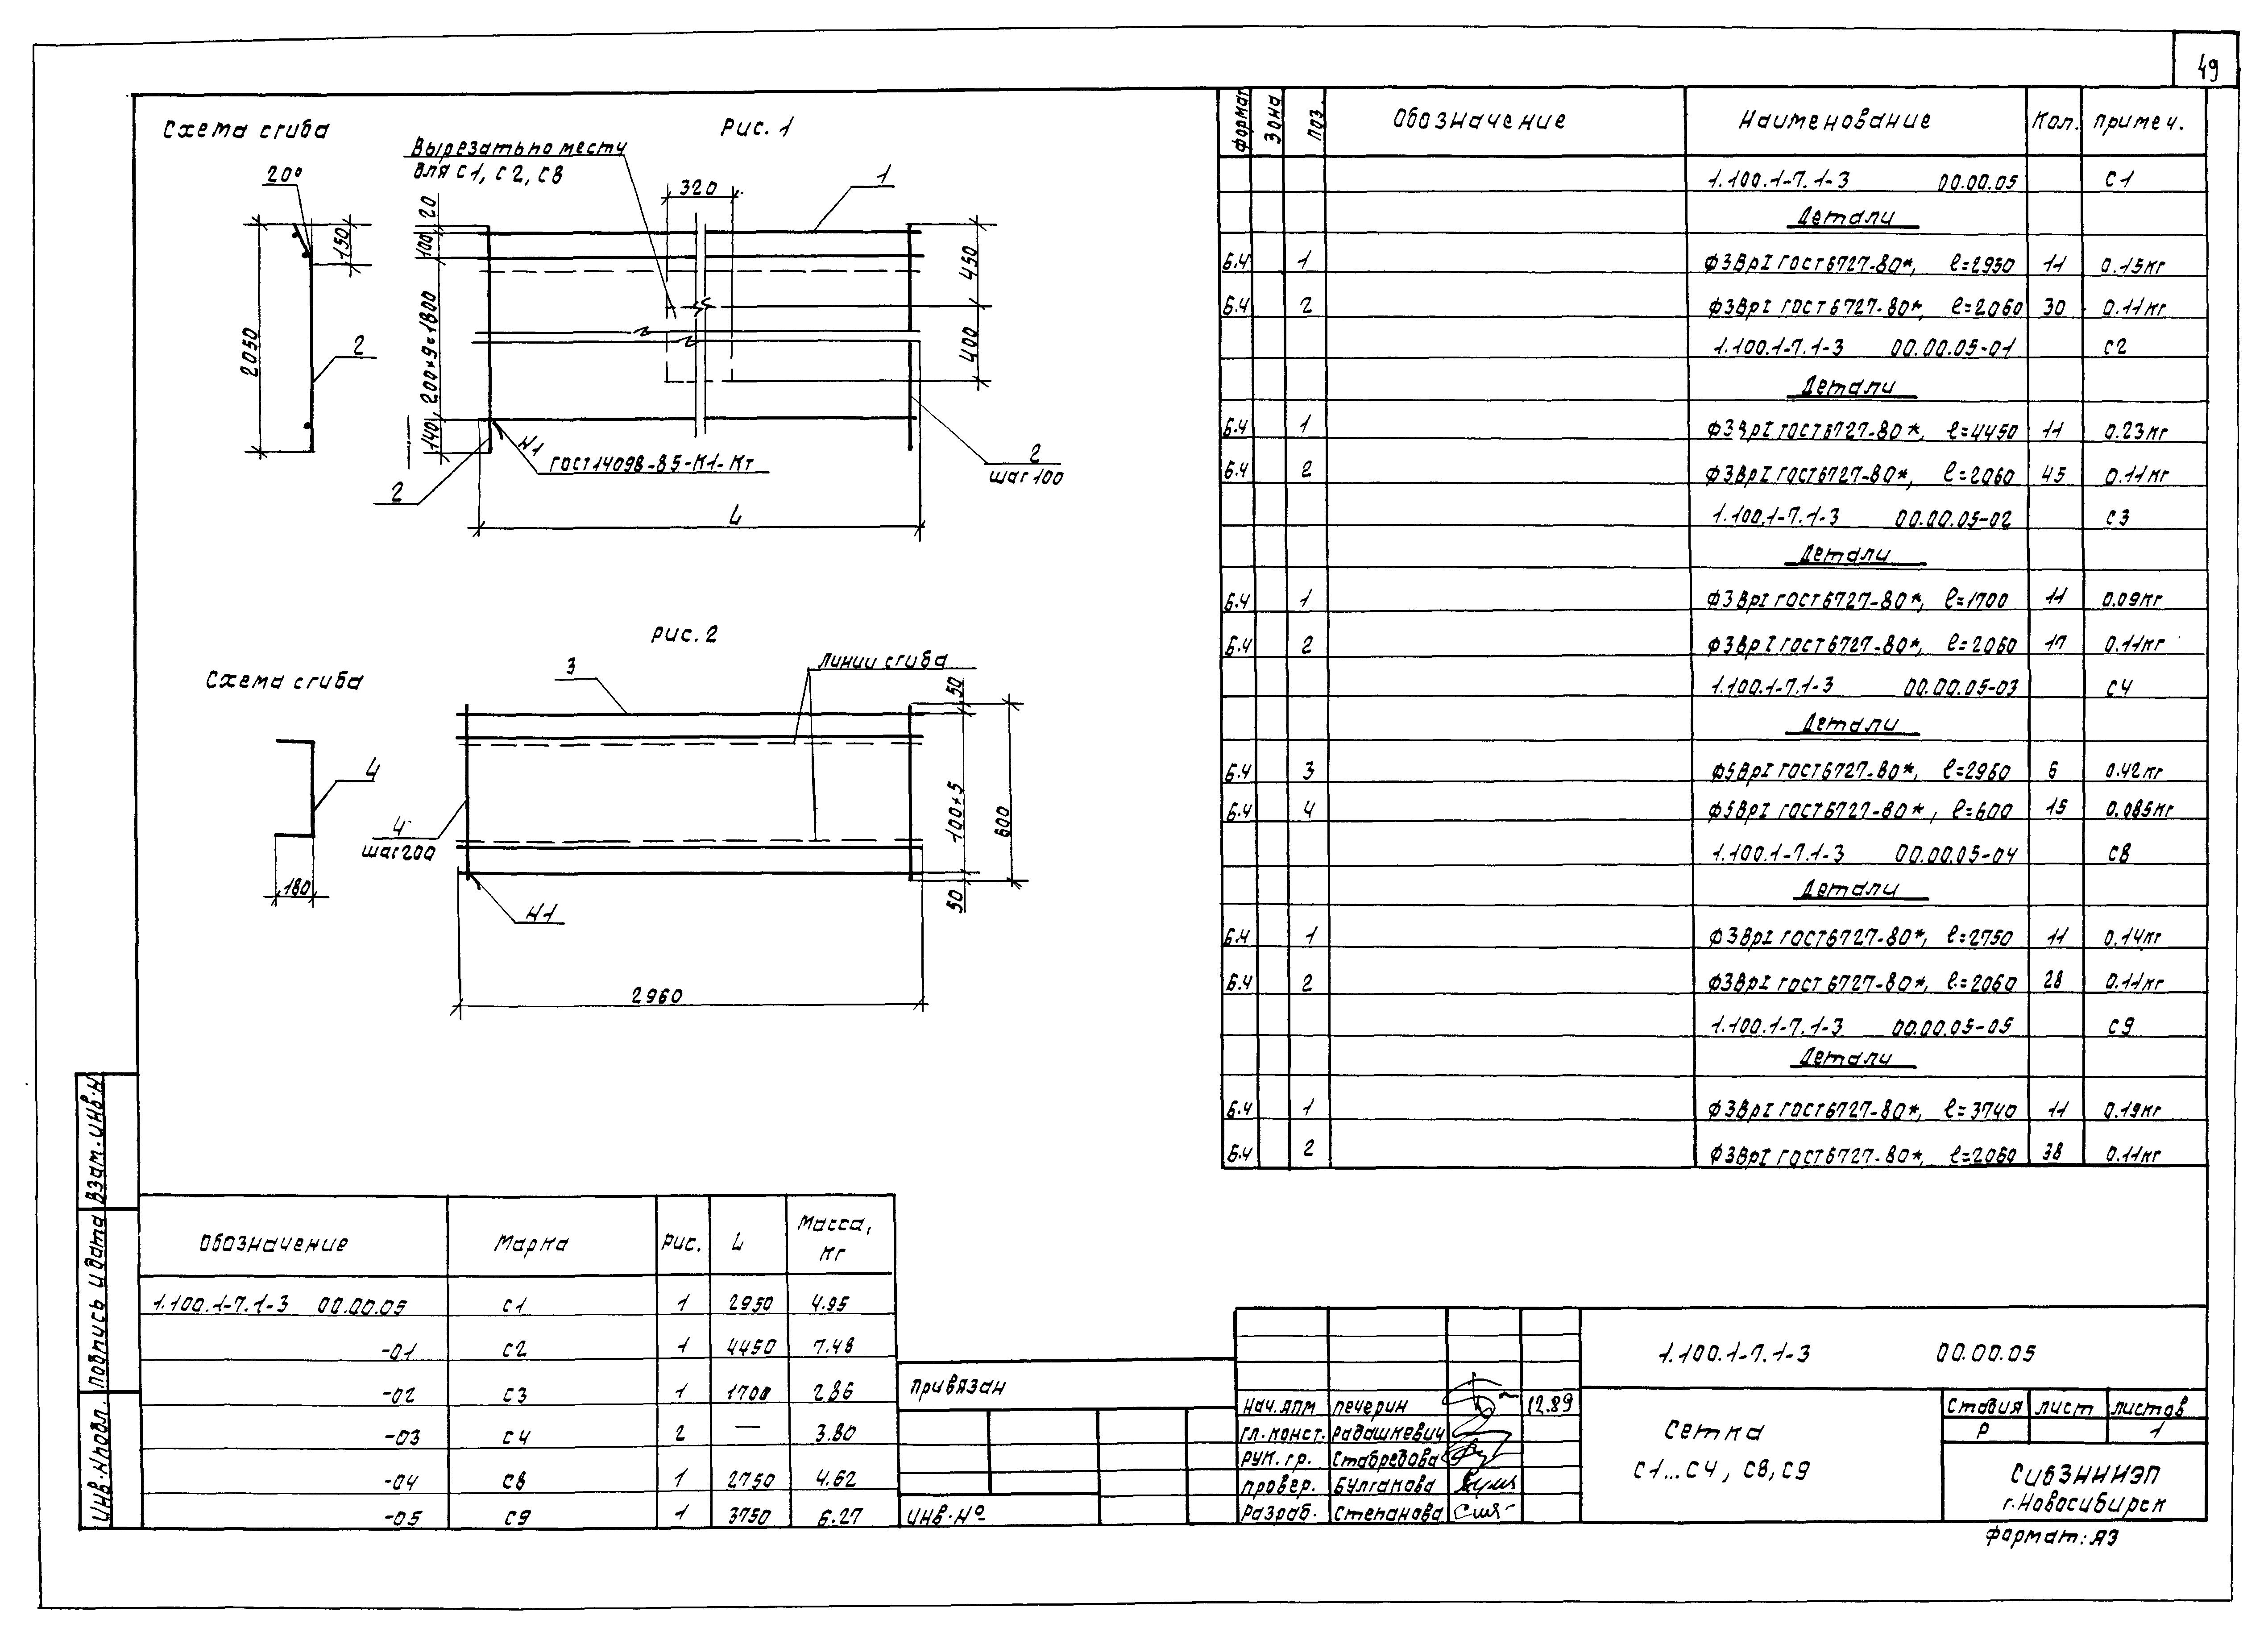 49
Схема сгиба
Рис. 1
Вырезать по месту
для С1, С2, С8
20°
150
2050
2
20
100
200×9=1800
140
320
1
450
400
Н1
ГОСТ14098-85-К1-Кт
2
2
шаг 100
L
Рис. 2
Схема сгиба
4
180
3
Линии сгиба
50
100×5
600
50
4
шаг200
Н1
2960
Формат Зона Поз. Обозначение Наименование Кол. Примеч.
1.100.1-7.1-3 00.00.05 С1
Детали
Б.Ч 1 Ф3ВрI ГОСТ6727-80*, ℓ=2950 11 0.15кг
Б.Ч 2 Ф3ВрI ГОСТ6727-80*, ℓ=2060 30 0.11кг
1.100.1-7.1-3 00.00.05-01 С2
Детали
Б.Ч 1 Ф3ВрI ГОСТ6727-80*, ℓ=4450 11 0.23кг
Б.Ч 2 Ф3ВрI ГОСТ6727-80*, ℓ=2060 45 0.11кг
1.100.1-7.1-3 00.00.05-02 С3
Детали
Б.Ч 1 Ф3ВрI ГОСТ6727-80*, ℓ=1700 11 0.09кг
Б.Ч 2 Ф3ВрI ГОСТ6727-80*, ℓ=2060 17 0.11кг
1.100.1-7.1-3 00.00.05-03 С4
Детали
Б.Ч 3 Ф5ВрI ГОСТ6727-80*, ℓ=2960 6 0.42кг
Б.Ч 4 Ф5ВрI ГОСТ6727-80*, ℓ=600 15 0.085кг
1.100.1-7.1-3 00.00.05-04 С8
Детали
Б.Ч 1 Ф3ВрI ГОСТ6727-80*, ℓ=2750 11 0.14кг
Б.Ч 2 Ф3ВрI ГОСТ6727-80*, ℓ=2060 28 0.11кг
1.100.1-7.1-3 00.00.05-05 С9
Детали
Б.Ч 1 Ф3ВрI ГОСТ6727-80*, ℓ=3740 11 0.19кг
Б.Ч 2 Ф3ВрI ГОСТ6727-80*, ℓ=2060 38 0.11кг
Обозначение Марка Рис. L Масса, кг
1.100.1-7.1-3 00.00.05 С1 1 2950 4.95
-01 С2 1 4450 7.48
-02 С3 1 1700 2.86
-03 С4 2 — 3.80
-04 С8 1 2750 4.62
-05 С9 1 3750 6.27
Инв.Nподл. Подпись и дата Взам.инв.N
Привязан
Инв.Nº
Нач.АПМ Печерин 12.89
Гл.конст. Радашкевич
Рук.гр. Стабредова
Провер. Булгакова
Разраб. Степанова
1.100.1-7.1-3 00.00.05
Сетка
С1...С4, С8, С9
Стадия Лист Листов
Р 1
СибЗНИИЭП
г.Новосибирск
Формат: А3